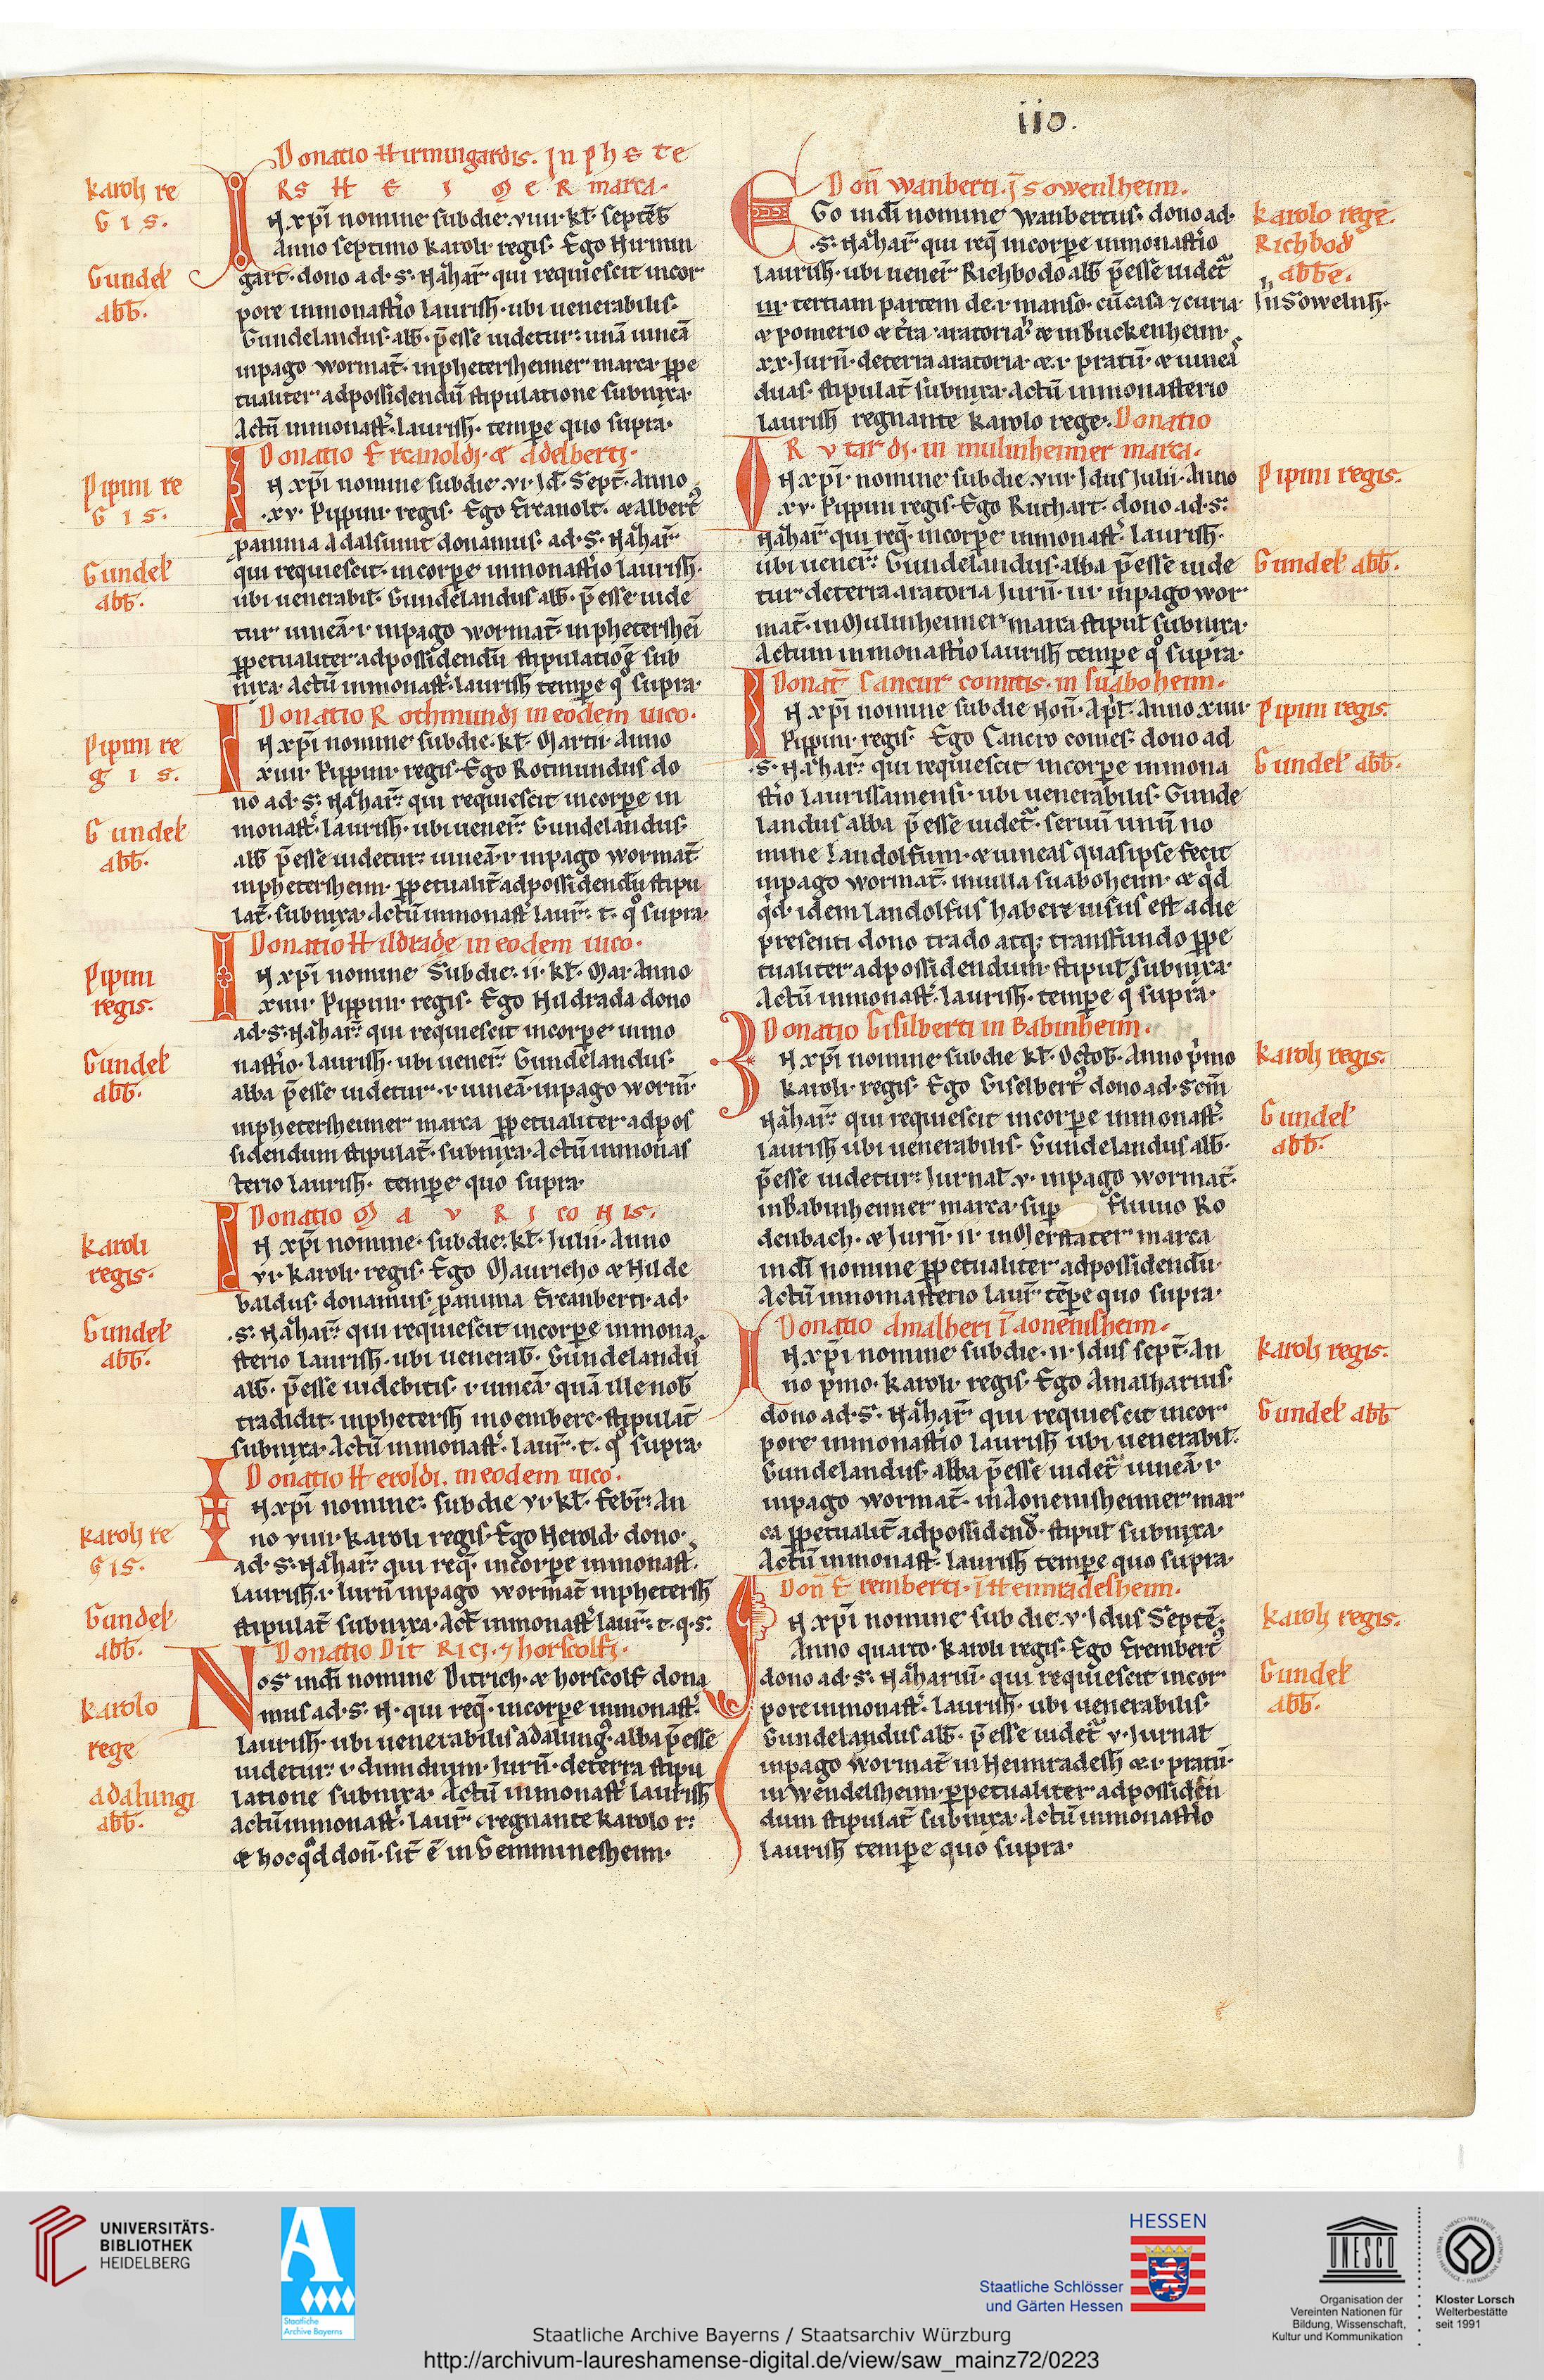 iio.
Donatio Hirmingardis. In phete
Rs HeimeR marca.
karoli re
gis.
N xpī nomine sub die. viiii. kł. septēb
Anno septimo karoli regis. Ego Hirmin
Gundel
abb.
gart. dono ad. s. Nazhar̄ qui requiescit in cor
pore in monastˀio laurish. ubi uenerabilis
Gundelandus. abb̄. p̄esse uidetur. unā uineā
in pago wormat̄. in phetersheimer marca. ꝑpe
tualiter ad possidendū stipulatione subnixa.
Actū in monastˀ. laurish. tempe quo supra.
Donatio Ercanoldi. et Adelberti.
Pipini re
gis.
N xpī nomine sub die. vi. Id. Sept̄. Anno
.xv. Pippini regis. Ego Ercanolt. et Albertˀ
ꝑ anima Adalsuint donamus. ad. s. Nazhar̄
Gundel
abb.
qui requiescit. in corpe in monastˀio laurish.
ubi uenerabil̄. Gundelandus abb̄. p̄esse uide
tur uineā. i. in pago wormat̄. in phetersheī
ꝑpetualiter ad possidendū stipulatiōe sub
nixa. Actū in monastˀ. laurish tempe qͦ supra.
Donatio Rothmundi in eodem uico.
Pipini re
gis.
N xpī nomine sub die. kł. Martii. Anno
xiiii. Pippini regis. Ego Rotmundus do
no ad. s. Nazhar̄. qui requiescit in corpe in
Gundel
abb.
monastˀ. laurish. ubi ueneır̄. Gundelandus.
abb̄ p̄esse uidetur. uineā. i. in pago wormat̄.
in phetersheim. ꝑpetualit̄ ad possidendū stipu
lat̄. subnixa. Actū in monastˀ laur̄. t. qͦ supra.
Donatio Hildrade in eodem uico.
Pipini
regis.
N xpī nomine Sub die. ii. kł. Mar. Anno
xiiii. Pippini regis. Ego Hildrada dono
ad. s. Nazhar̄. qui requiescit in corpe in mo
Gundel
abb.
nastˀio. laurish. ubi ueneır̄. Gundelandus.
abba p̄esse uidetur. i. uineā. in pago worm̄.
in phetersheimer marca ꝑpetualiter ad pos
sidendum stipulat̄. subnixa. Actū in monas
terio laurish. tempe quo supra.
Donatio MavRicoNis.
karoli
regis.
N xpī nomine. sub die. kł. Julii. Anno
vi. karoli regis. Ego Mauricho et Hilde
baldus. donamus ꝑ anima Ercanberti. ad.
Gundel
abb.
.s. Nazhar̄. qui requiescit in corpe in mona
sterio laurish. ubi uenerab̄. Gundelandū
abb̄. p̄esse uidebitis. i. uineā quā ille nob̄
tradidit. in phetersh in oemberc. stipulat̄
subnixa. Actū in monastˀ. laur̄. t. qͦ supra.
Donatio Heroldi. in eodem uico.
karoli re
gis.
N xpī nomine. sub die vi. kł. Febr̄. An
no viiii. karoli regis. Ego Herold. dono.
ad. s. Nazhar̄. qui req̄. in corpe in monastˀ.
laurish. i. iurn̄ in pago wormat̄ in phetersh
Gundel
abb.
stipulat̄ subnixa. Act̄ in monastˀ laur̄. t. q. s.
Donatio DitRici. ⁊ horscolfi.
Nos in dī nomine Ditrich. et horscolf dona
karolo
rege
mus ad. s. N. qui req̄. in corpe in monastˀ.
laurish. ubi uenerabilis adalungˀ. abba p̄esse
uidetur. i. dimidium. Jurn̄. de terra stipu
adalungi
abb.
latione subnixa. Actū in monastˀ laurish
Actū in monastˀ. laur̄ regnante karolo r.
et hoc qd̄ don̄. sit̄ ē in Gemminesheim.
Don̄ wanberti. ī sowenlheim.
karolo rege.
Richbod
abbe.
Ego in dī nomine wanbertus. dono ad.
.s. Nazhar̄ qui req̄ in corpe in monastˀio
laurish. ubi ueneır̄ Richbodo abb̄ p̄esse uidetˀ
In Sowelnh.
iii. tertiam partem de. i. manso. cū casa ⁊ curia.
et pomerio et tˀra aratoria. et in Buckenheim.
xx. Jurn̄. de terra aratoria. et. i. pratū. et uineā
duas. stipulat̄ subnixa. Actū in monasterio
laurish regnante karolo rege. Donatio
Rvtardi. in mulinheimer marca.
Pipini regis.
N xpī. nomine sub die. viii. Idus Julii. Anno
xv. Pippini regis. Ego Ruthart. dono ad. s.
Nazhar̄ qui req̄. in corpe in monastˀ. laurish.
Gundel abb.
ubi ueneır̄. Gundelandus. abba p̄esse uide
tur de terra aratoria Jurn̄. iii. in pago wor
mat̄. in Mulinheimer marca stipul̄ subnixa.
Actum in monastˀio laurish tempe qͦ supra.
Donat̄ Cancur comitis. in suaboheim.
Pipini regis.
N xpī nomine sub die Non̄. Apr̄l. Anno xiiii
Pippini. regis. Ego Cancro comes. dono ad
Gundel abb.
.s. Nazhar̄. qui requiescit in corpe in mona
stˀio laurissamensi. ubi uenerabilis. Gunde
landus abba p̄esse uidetˀ. seruū unū no
mine landolfum. et uineas quas ipse fecit
in pago wormat̄. in uilla suaboheim. et qd̄
qd̄ idem landolfus habere uisus est a die
presenti dono trado atq; transfundo ꝑpe
tualiter ad possidendum. stipul̄ subnixa.
Actū in monastˀ. laurish. tempe qͦ supra.
Donatio Gisilberti in Babinheim.
karoli regis.
N xpī nomine. sub die kł. Octob̄. Anno pͥmo
karoli. regis. Ego Giselbertˀ dono ad. scm̄
Gundel
abb.
Nazhar̄. qui requiescit in corpe in monastˀ.
laurish ubi uenerabilis. Gundelandus abb̄.
p̄esse uidetur. Jurnal̄. v. in pago wormat̄.
in Babinheimer marca. sup fluuio Ro
denbach. et Jurn̄. ii. in Merstater marca
in dī nomine ꝑpetualiter ad possidendū.
Actū in nomasterio laur̄ tēpe quo supra.
Donatio Amalheri ī aonenisheim.
karoli regis.
N xpī nomine sub die. ii. Idus sept̄. An
no pͥmo. karoli. regis. Ego Amalharius.
Gundel abb
dono ad. S. Nazhar̄ qui requiescit in cor
pore in monastˀio laurish ubi uenerabil̄.
Gundelandus. abba p̄esse uidetˀ uineā. i
in pago wormat̄. in Aonenisheimer mar
ca ꝑpetualit̄ ad possidend̄. stipul̄ subnixa.
Actū in monastˀ. laurish tempe quo supra.
Don̄ Eremberti. ī Heimradesheim.
karoli regis.
N xpī nomine sub die. v. Idus Septē.
Anno quarto. karoli regis. Ego Erembertˀ
Gundel
abb.
dono ad. s. Nazhariū. qui requiescit in cor
pore in monastˀ. laurish. ubi uenerabilis.
Gundelandus abb̄. p̄esse uidetˀ v. Jurnal
in pago wormat̄ in Heimradesh et. i. pratū.
in wendelsheim. ꝑpetualiter ad possiden
dum stipulat̄ subnixa. Actū in monastˀio
laurish tempe quo supra.
UNIVERSITÄTS-
BIBLIOTHEK
HEIDELBERG
Staatliche
Archive Bayerns
HESSEN
Staatliche Schlösser
und Gärten Hessen
UNESCO
Organisation der
Vereinten Nationen für
Bildung, Wissenschaft,
Kultur und Kommunikation
Kloster Lorsch
Welterbestätte
seit 1991
Staatliche Archive Bayerns / Staatsarchiv Würzburg
http://archivum-laureshamense-digital.de/view/saw_mainz72/0223